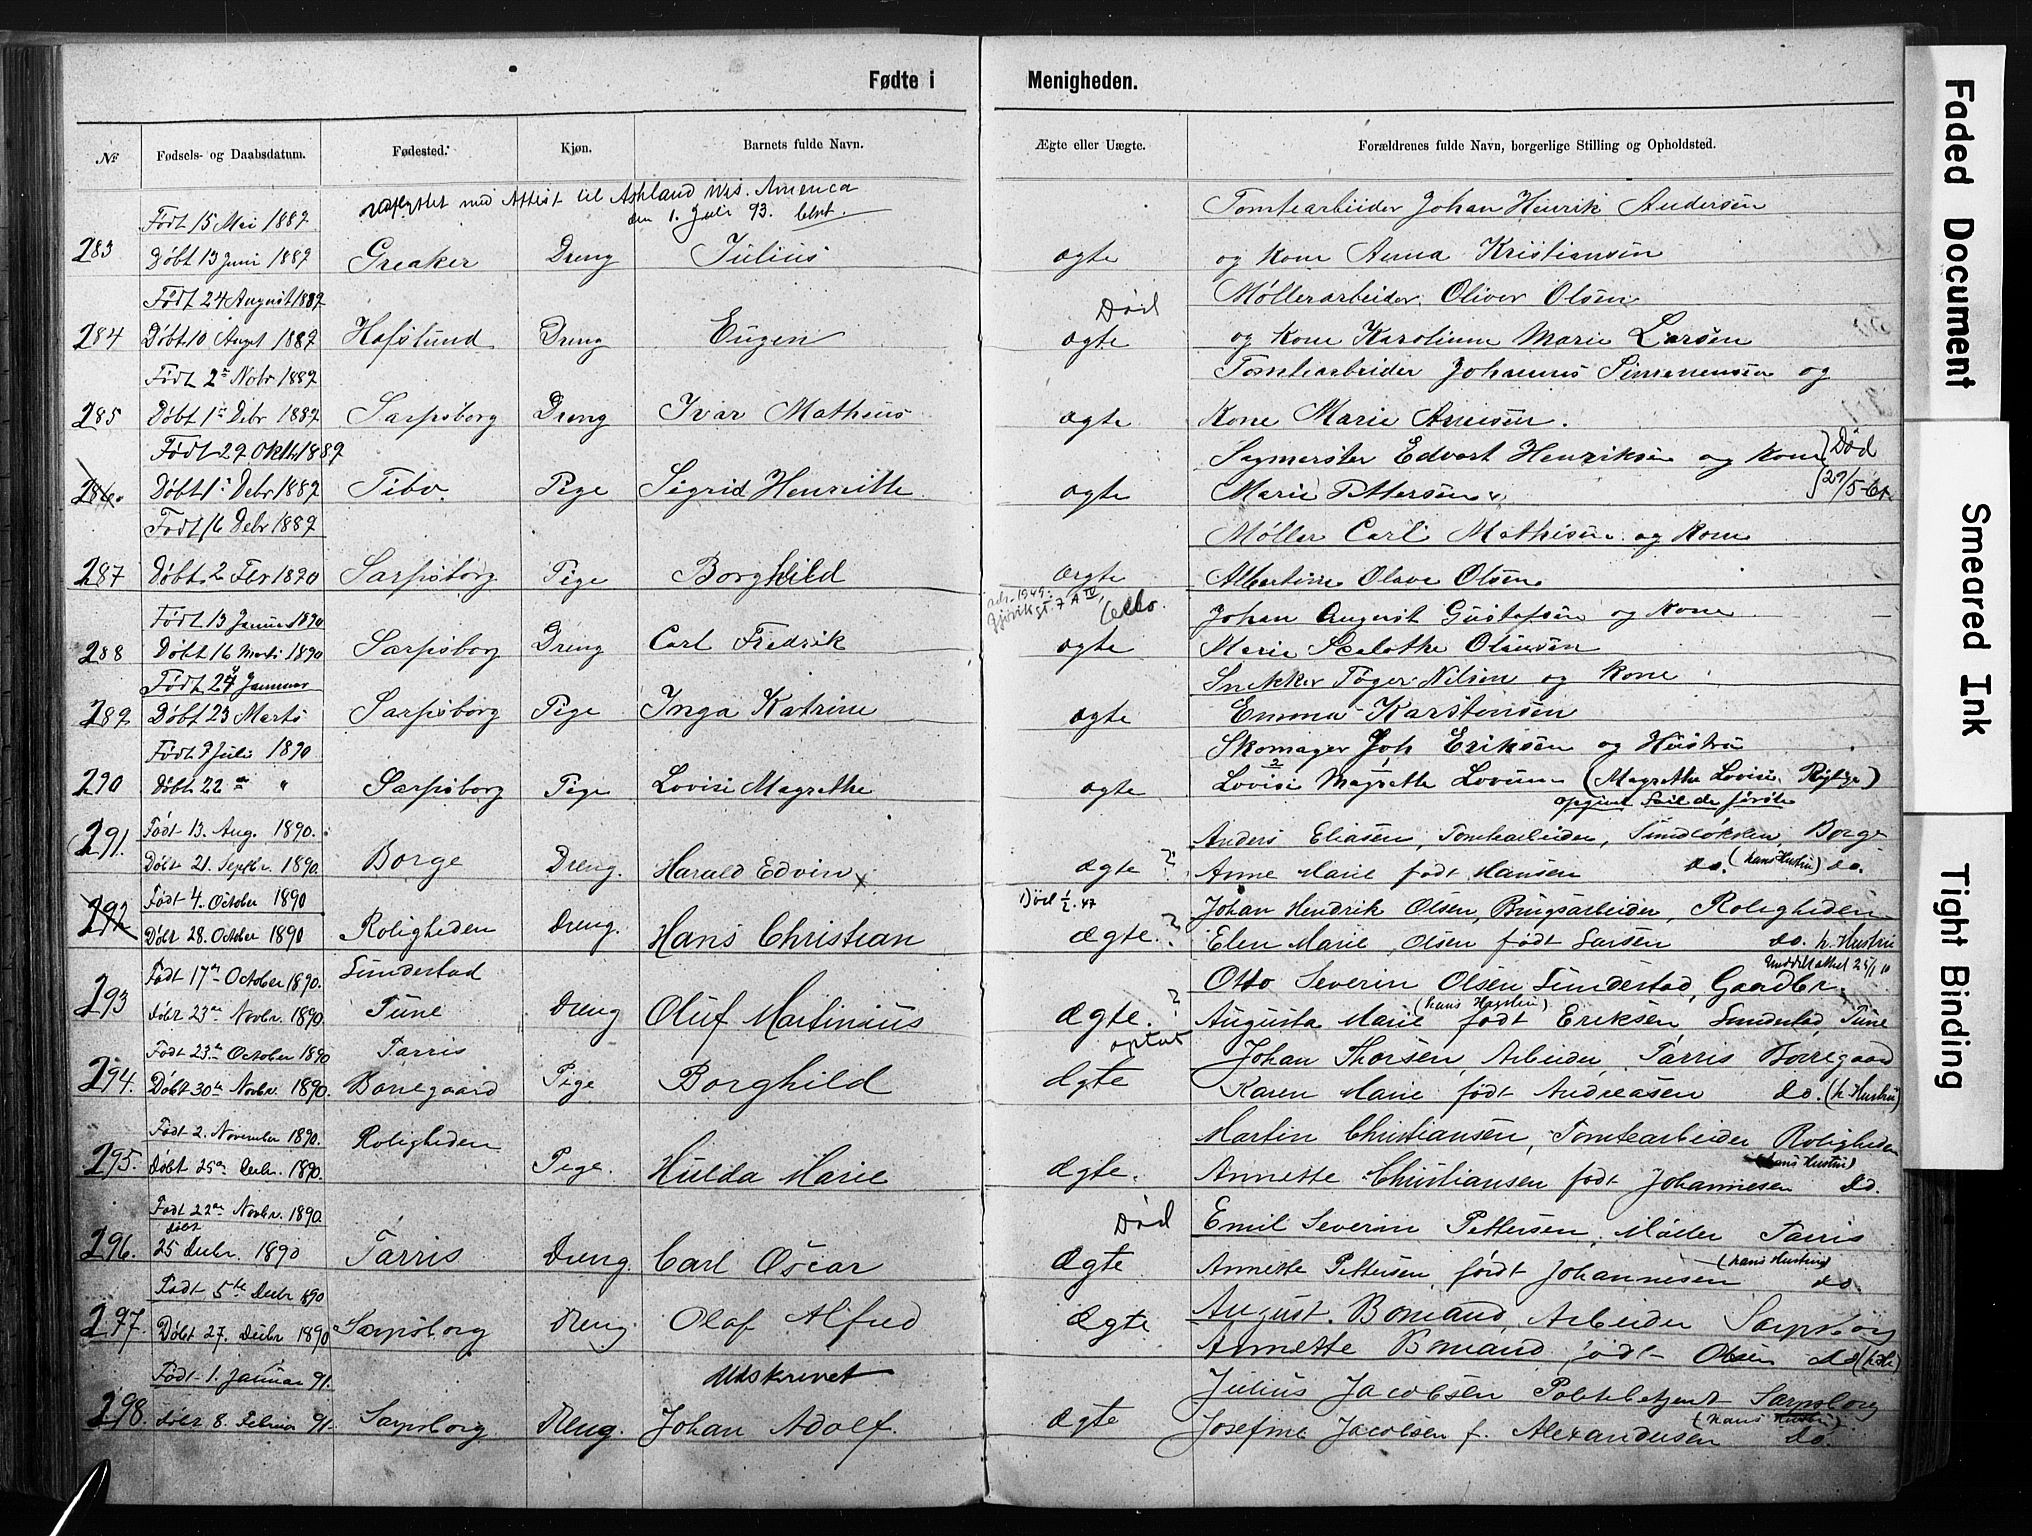 Fødte i Menigheden.
№ Fødsels- og Daabsdatum. Fødested. Kjøn. Barnets fulde Navn. Ægte eller Uægte. Forældrenes fulde Navn, borgerlige Stilling og Opholdsted.
Udflyttet med Attest til Ashland Wis. America
den 1. Juli 93.
Født 15 Mai 1889 Tomtearbeider Johan Henrik Andersen
283 Døbt 13 Juni 1889 Greaker Dreng Julius ægte og Kone Anna Kristiansen
Født 24 August 1889 Død Møllerarbeider Oliver Olsen
284 Døbt 10 Augst 1889 Hafslund Dreng Eugen ægte og Kone Karoline Marie Larsen
Født 2 Nobr 1889 Tomtearbeider Johannes Simensen og
285 Døbt 1 Debr 1889 Sarpsborg Dreng Ivar Matheus ægte Kone Marie Arnesen.
Født 29 Oktb 1889 Sagmester Edvart Henriksen og Kone Død
286. Døbt 1 Debr 1889 Tibo. Pige Sigrid Henriette ægte Marie Pettersen
Født 16 Debr 1889 Møller Carl Mathisen og Kone
287 Døbt 2 Fer 1890 Sarpsborg Pige Borghild ægte Albertine Olava Olsen
adr. 1949.
Gjøvikgt. 7 A IV,
Oslo.
Født 13 Januar 1890 Johan August Gustafsen og Kone
288 Døbt 16 Marts 1890 Sarpsborg Dreng Carl Fredrik ægte Marie Olausen
Født 24 Januar Snekker Tøger Nilsen og Kone
289 Døbt 23 Marts Sarpsborg Pige Inga Katrine ægte Emma Karstensen
Født 9 Juli 1890 Skomager Joh Eriksen og Hustru
290 Døbt 22 " Sarpsborg Pige Lovise Magrethe ægte Lovise Magrethe Lovum (Magrethe Lovise Rigtige)
opgivet feil de første
Født 13. Aug. 1890. Anders Eliasen, Tomtearbeider, Sundløkken Borge
291. Døbt 21. Septbr. 1890. Borge Dreng. Harald Edvin x ægte ? Anne Marie født Hansen do. (hans Hustru) do.
Født 4. October 1890 Død 1/2. 47 Johan Hendrik Olsen, Brugsarbeider, Roligheden
292 Døbt 28. October 1890 Roligheden Dreng. Hans Christian Ægte. ? Elen Marie Olsen født Larsen do. h. Hustru
Uddel attest 25/1 10
Født 17 October 1890. Sundestad Otto Severin Olsen Sundestad, Gaardbr.
293 Døbt 23 Novbr. 1890. Tune Dreng Oluf Martinius Ægte. ? Augusta Marie (hans Hustru) født Eriksen, Sundestad, Tune
Født 23. October 1890 Tarris Johan Thorsen, Arbeider, Tarris Borregaard
294. Døbt 30te Novbr. 1890. Borregaard Pige Borghild Ægte Karen Marie født Andreasen do. (h. Hustru)
Født 2. November 1890. Roligheden Martin Christiansen, Tomtearbeider Roligheden
295. Døbt 25 Decbr. 1890. Pige. Hulda Marie Ægte. Annette Christiansen født Johannesen (hans Hustru) do.
Født 22 Novbr. 1890. Død Emil Severin Pettersen, Møller Tarris
296. døbt 25 Decbr. 1890 Tarris Dreng. Carl Oscar Ægte Annette Pettersen, født Johannesen (hans Hustru) do.
Født 5te Decbr 1890 August Bomand, Arbeider Sarpsborg
297. Døbt 27. Decbr 1890 Sarpsborg Dreng Olaf Alfred Ægte. Annette Bomand født Olsen do
Født 1. Januar 91. Udskrevet Julius Jacobsen Politibetjent Sarpsborg
298. Døbt 8. Februar 91. Sarpsborg Dreng. Johan Adolf. Ægte Josefine Jacobsen f. Alexandersen (hans Hustru) do.
Faded Document
Smeared Ink
Tight Binding